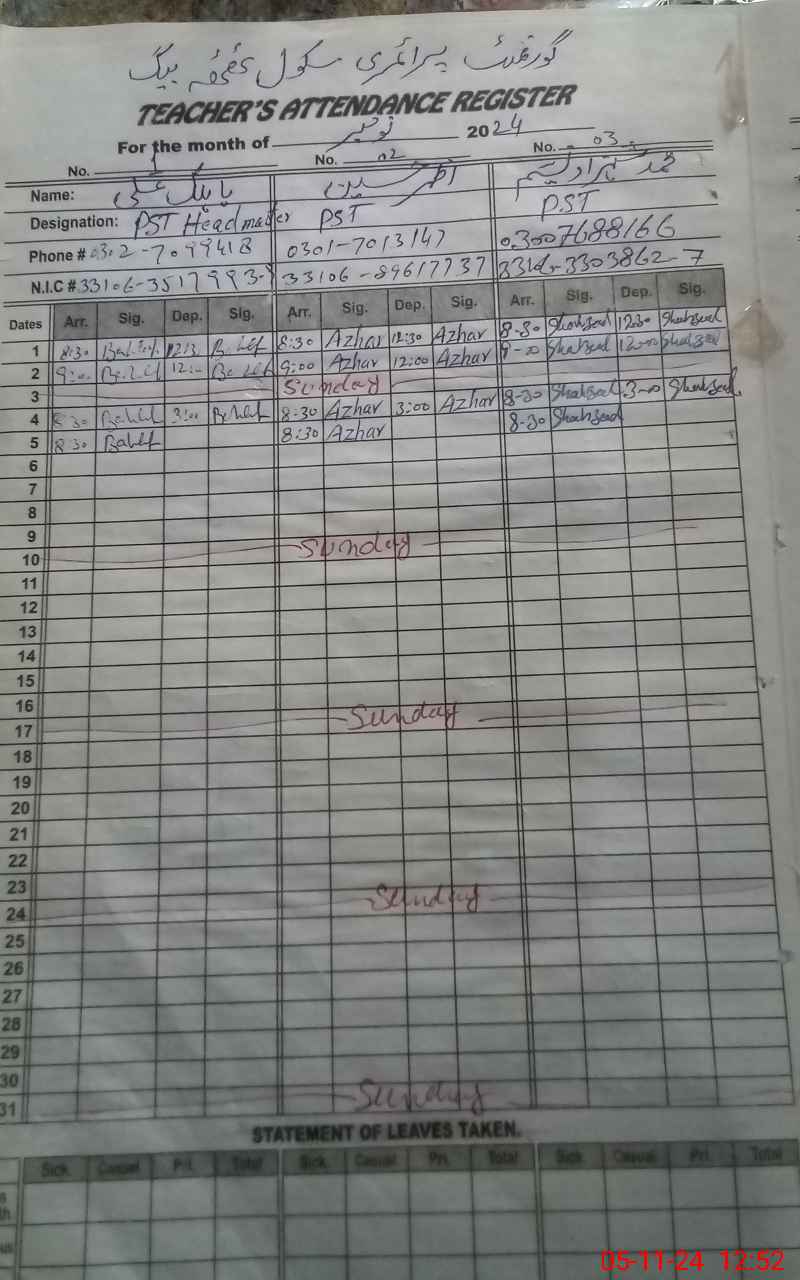 گورنمنٹ پرائمری سکول بیگ
TEACHER'S ATTENDANCE REGISTER
For the month of نومبر 2024
No. 1 No. 02 No. 03
Name: علی اظہر حسین محمد شہزاد
Designation: PST Headmaster PST PST
Phone # 0302-7099418 0301-7013147 03007688166
N.I.C # 33106-89617737
Dates Arr. Sig. Dep. Sig. Arr. Sig. Dep. Sig. Arr. Sig. Dep. Sig.
1 8:30 8:30 Azhar 12:30 Azhar 8-30 Shahzad 12:30 Shahzad
2 9:00 Azhar 12:00 Azhar 9-00 Shahzad 12-00 Shahzad
3 Sunday
4 8:30 3:00 8:30 Azhar 3:00 Azhar 8-30 Shahzad 3-00 Shahzad
5 8:30 8:30 Azhar 8-30 Shahzad
6
7
8
9
10 Sunday
11
12
13
14
15
16
17 Sunday
18
19
20
21
22
23
24 Sunday
25
26
27
28
29
30
31 Sunday
STATEMENT OF LEAVES TAKEN.
Sick Casual Pri. Total Sick Casual Pri. Total Sick Casual Pri. Total
05-11-24 12:52